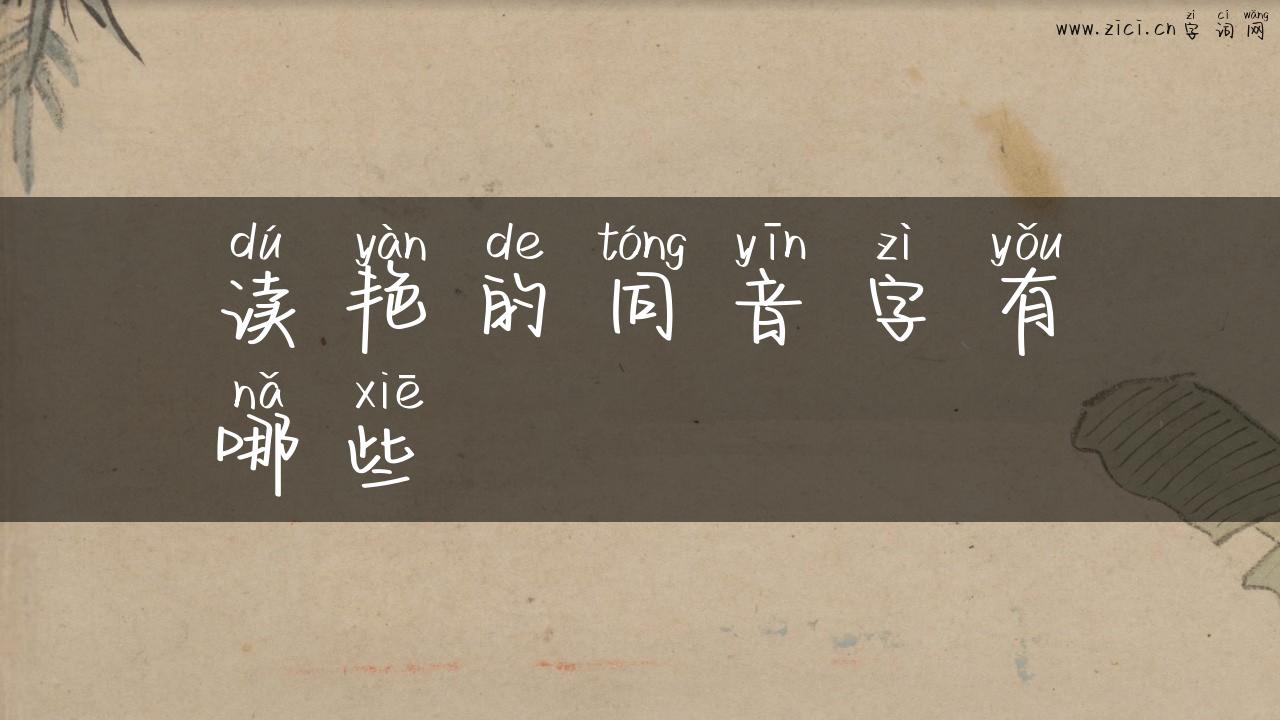 zì cí wǎng
www.zici.cn 字 词 网
dú yàn de tóng yīn zì yǒu
读 艳 的 同 音 字 有
nǎ xiē
哪 些